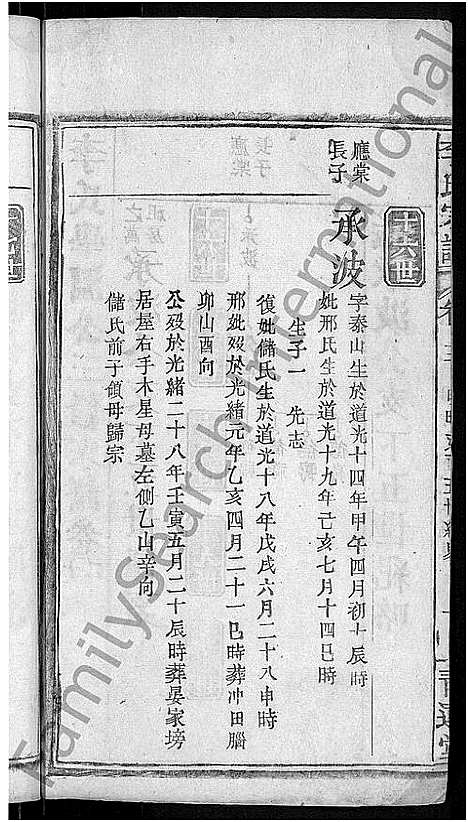 十六世
應棠
長子
承波
字泰山生於道光十四年甲午四月初十辰時
妣邢氏生於道光十九年己亥七月十四巳時
生子一 先志
復妣儲氏生於道光十八年戊戌六月二十八申時
邢妣歿於光緒元年乙亥四月二十一巳時葬冲田腦
卯山酉向
公歿於光緒二十八年壬寅五月二十辰時葬晏家塝
居屋右手木星母墓左側乙山辛向
儲氏前子領母歸宗
李氏宗譜
FamilySearch International